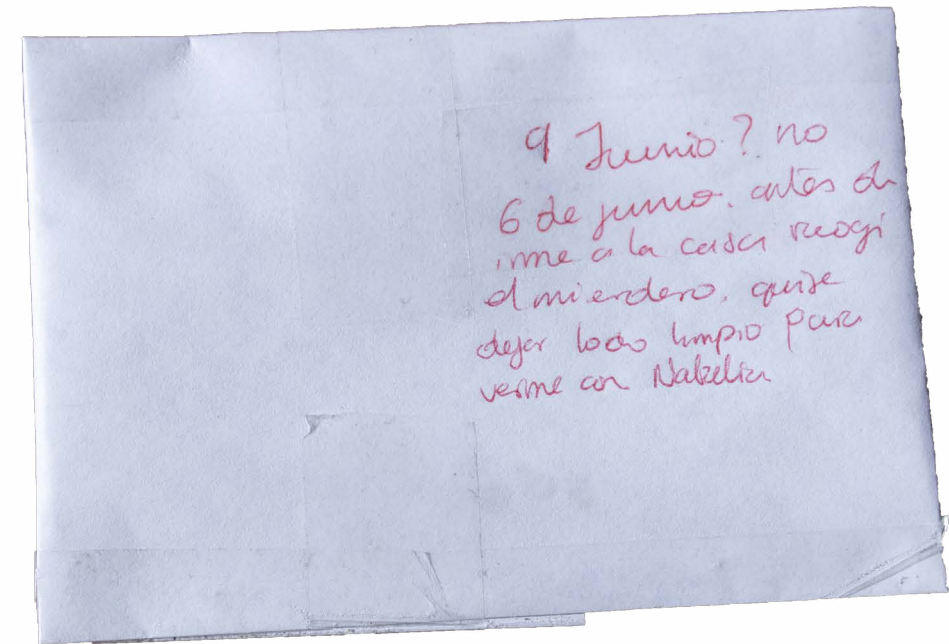 9 Junio? no
6 de junio. antes de
irme a la casa recogí
el mierdero. quise
dejar todo limpio para
verme con Natalia